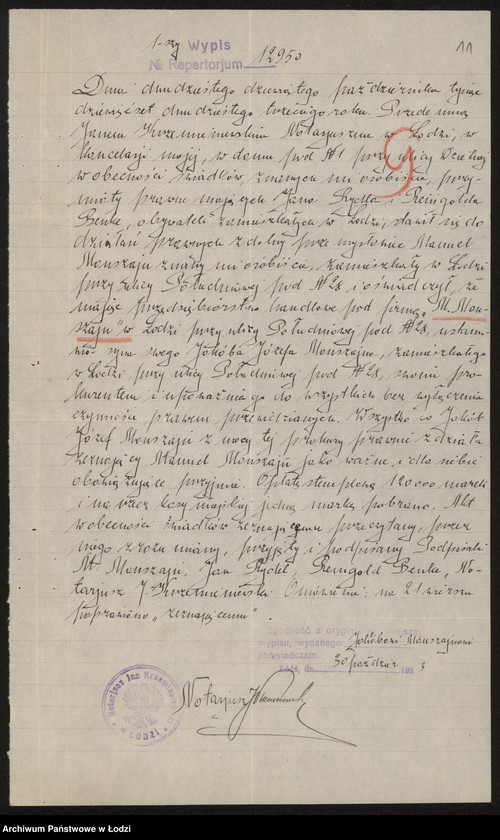 1-szy Wypis
№ Repertorjum 12950
11
Dnia dwudziestego dziewiątego października tysiąc
dziewięćset dwudziestego trzeciego roku. Przede mną
Janem Krzemieniewskim Notarjuszem w Łodzi, w
kancelarji mojej, w domu pod № 1 przy ulicy
w obecności świadków, znanych mi osobiście, przy-
mioty prawne mających Jana Rydla i Reingolda
Benke, obywateli zamieszkałych w Łodzi, stawił się do
działań prawnych zdolny przemysłowiec Manuel
Monszajn znany mi osobiście, zamieszkały w Łodzi
przy ulicy Południowej pod № 28 i oświadczył, że
mając przedsiębiorstwo handlowe pod firmą "M. Mon-
szajn" w Łodzi przy ulicy Południowej pod № 28, ustana-
wia syna swego Jakóba Józefa Monszajna, zamieszkałego
w Łodzi przy ulicy Południowej pod № 28, swoim pro-
kurentem i upoważnia go do wszystkich bez wyłączenia
czynności prawem przewidzianych. Wszystko co Jakób
Józef Monszajn z mocy tej prokury prawnie zdziała
zeznający Manuel Monszajn jako ważne i dla siebie
obowiązujące przyjmie. Opłatę stemplową 120000 marek
i na rzecz kasy miejskiej jedną markę pobrano. Akt
w obecności świadków zeznającemu przeczytany, przez
niego zrozumiany, przyjęty i podpisany. Podpisali:
M. Monszajn, Jan Rydel, Reingold Benke, No-
tarjusz J. Krzemieniewski. Omówienie: na 21 wierszu
poprawiono "zeznającemu".
Zgodność z
wypisu, wydanego Jakóbowi Monszajnowi
poświadczam.
Łódź, dn. 30 paździer 1923
Notarjusz
Notarjusz Jan Krzemieniewski
w ŁODZI
9
Archiwum Państwowe w Łodzi